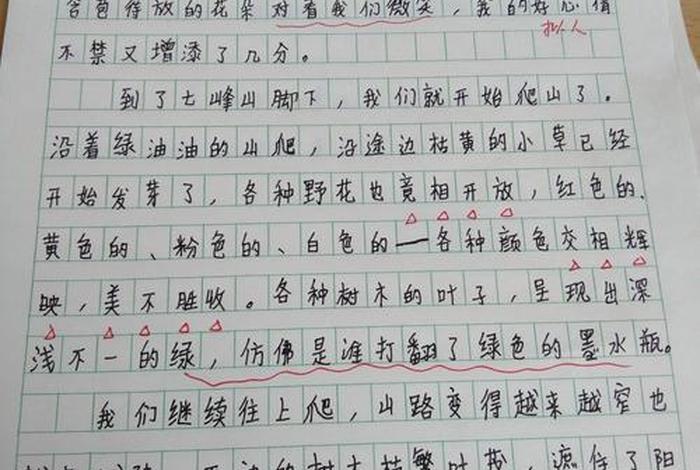 含苞待放的花朵对着我们微笑，我的好心情
拟人
不禁又增添了几分。
到了七峰山脚下，我们就开始爬山了。
沿着绿油油的山爬，沿途边枯黄的小草已经
开始发芽了，各种野花也竟相开放，红色的、
黄色的、粉色的、白色的——各种颜色交相辉
映，美不胜收。各种树木的叶子，呈现出深
浅不一的绿，仿佛是谁打翻了绿色的墨水瓶。
我们继续往上爬，山路变得越来越窄也
的树木枝繁叶茂，遮住了阳